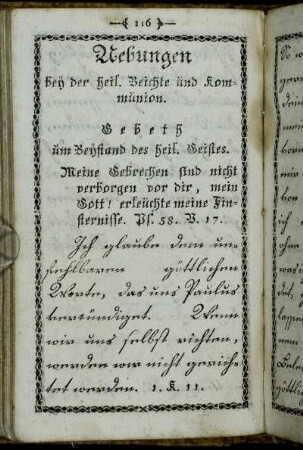 116
Uebungen
bey der heil. Beichte und Kom-
munion.
Gebeth
um Beystand des heil. Geistes.
Meine Gebrechen sind nicht
verborgen vor dir, mein
Gott! erleuchte meine Fin-
sternisse. Ps. 58. V. 17.
Ich glaube dem un-
fehlbaren göttlichen
Worte, das uns Paulus
verkündiget. Wenn
wir uns selbst richten,
werden wir nicht gerich-
tet werden. 1. K. 11.